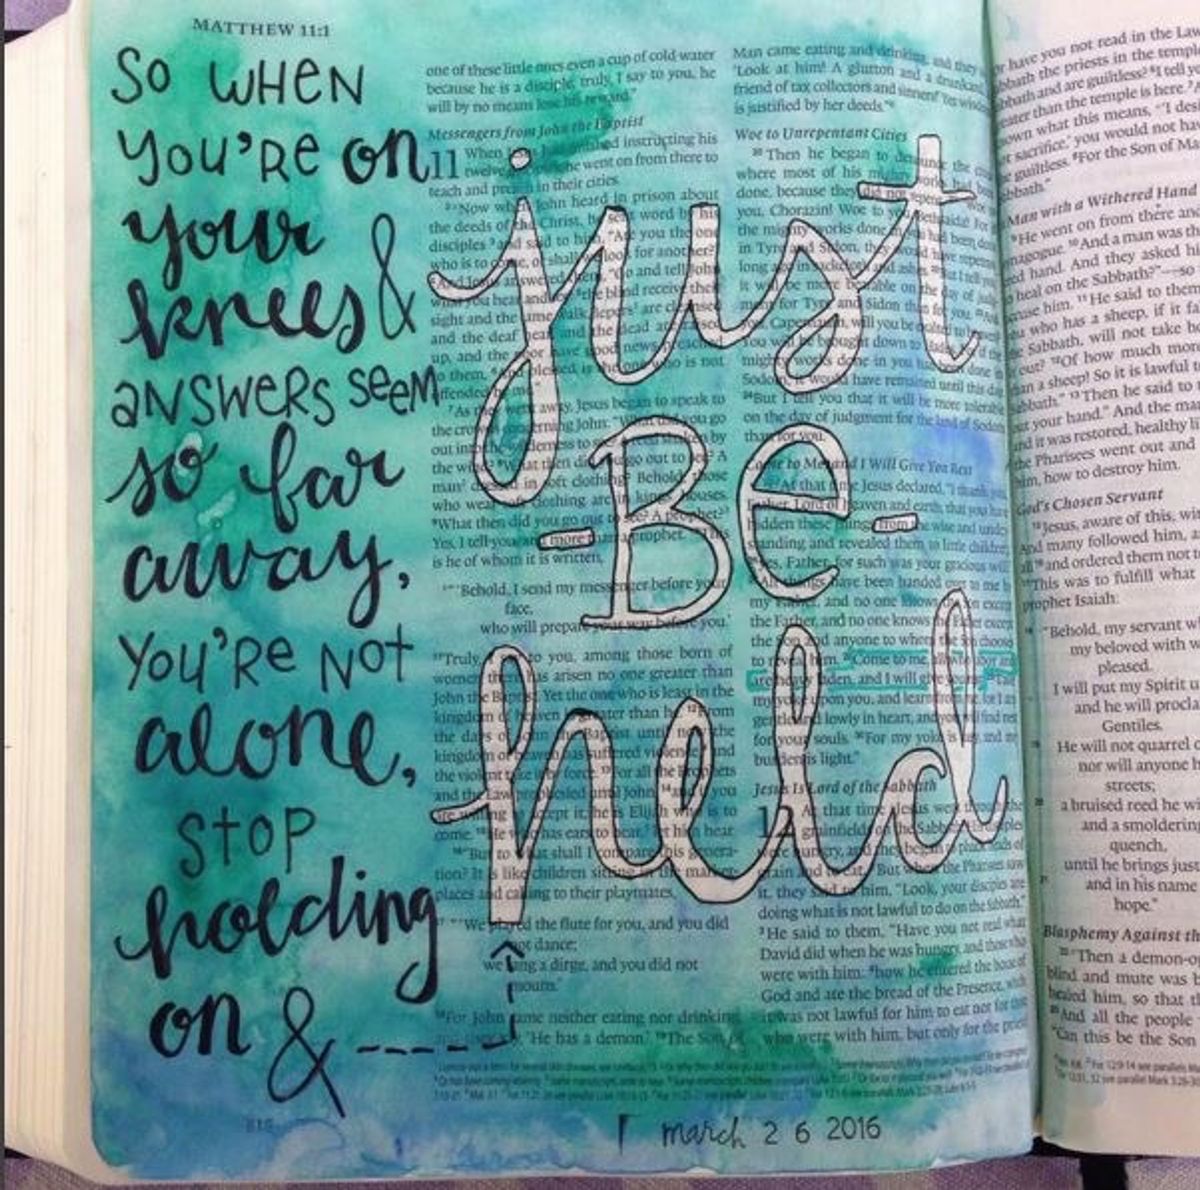 MATTHEW 11:1
SO WHEN
YOU'RE on
your
knees &
ANSWERS SEEM
so far
away,
YOU'RE NOT
alone,
STOP
holding
on &
just
Be
held
one of these little ones even a cup of cold water
because he is a disciple, truly, I say to you, he
will by no means lose his reward."
Messengers from John the Baptist
11 When Jesus had finished instructing his
twelve he went on from there to
teach and preach in their cities.
Now when John heard in prison about
the deeds of the Christ, he sent word by his
disciples and said to him, "Are you the one
who is to come, or shall look for another?"
And Jesus answered them, "Go and tell John
what you hear and the blind receive their
sight and the lame walk, lepers are cleansed
and the deaf hear, and the dead are raised
up, and the poor have good news preached
to them. And blessed is the one who is not
offended by me."
As they went away, Jesus began to speak to
the crowds concerning John: "What did you go
out into the wilderness to see? shaken by
the wind? What then did you go out to see? A
man dressed in soft clothing? Behold, those
who wear soft clothing are in kings' houses.
What then did you go out to see? A prophet?
Yes, I tell you, and more than a prophet. This
is he of whom it is written,
"'Behold, I send my messenger before your
face,
who will prepare your way before you.'
Truly, to you, among those born of
women there has arisen no one greater than
John the Baptist. Yet the one who is least in the
kingdom of heaven greater than he. From
the days of John the Baptist until now the
kingdom of heaven has suffered violence, and
the violent take it by force. For all the Prophets
and the Law prophesied until John, and you
are willing accept it, he is Elijah who is to
come. He who has ears to hear, let him hear.
"But to what shall I compare this genera-
tion? It is like children sitting in the market-
places and calling to their playmates,
"'We played the flute for you, and you did
not dance;
we sang a dirge, and you did not
mourn.'
For John came neither eating nor drinking,
'He has a demon.' The Son of
Man came eating and drinking, and they
'Look at him! A glutton and a drunkard,
friend of tax collectors and sinners!' Yet wisdom
is justified by her deeds."
Woe to Unrepentant Cities
Then he began to denounce the
where most of his mighty works had
done, because they did not repent.
you, Chorazin! Woe to you, Bethsaida! For
the mighty works done in you had been done
in Tyre and Sidon, they would have repented
long ago in sackcloth and ashes. But I tell you,
it will be more bearable on the day of judg-
ment for Tyre and Sidon than for you. And
you, Capernaum, will you be exalted to
You will be brought down to
mighty works done in you had been done in
Sodom, it would have remained until this day.
But I tell you that it will be more tolerable
on the day of judgment for the land of Sodom
than for you.
Come to Me, and I Will Give You Rest
At that time Jesus declared, "I thank you,
Father, Lord of heaven and earth, that you have
hidden these things from the wise and under-
standing and revealed them to little children;
yes, Father, for such was your gracious will.
All things have been handed over to me by
my Father, and no one knows the Son except
the Father, and no one knows the Father except
the Son and anyone to whom the Son chooses
to reveal him. Come to me, all who labor and
are heavy laden, and I will give you rest. Take
my yoke upon you, and learn from me, for I am
gentle and lowly in heart, and you will find rest
for your souls. For my yoke is easy, and my
burden is light."
Jesus Is Lord of the Sabbath
12 At that time Jesus went through the
grainfields on the Sabbath. His disciples
were hungry, and they began to pluck heads of
grain and to eat. But when the Pharisees saw
it, they said to him, "Look, your disciples are
doing what is not lawful to do on the Sabbath."
He said to them, "Have you not read what
David did when he was hungry, and those who
were with him: how he entered the house of
God and ate the bread of the Presence, which
it was not lawful for him to eat nor for those
who were with him, but only for the priests
march 26 2016
have you not read in the Law
the priests in the temple
and are guiltless? I tell you
than the temple is here.
what this means, 'I desire
sacrifice,' you would not have
guiltless. For the Son of Man
Man with a Withered Hand
He went on from there and
And a man was there
hand. And they asked him
to heal on the Sabbath?"—so
him. He said to them,
who has a sheep, if it falls
Sabbath, will not take hold
out? Of how much more
than a sheep! So it is lawful to
Then he said to
out your hand." And the man
it was restored, healthy like
the Pharisees went out and
him, how to destroy him.
God's Chosen Servant
Jesus, aware of this, with
And many followed him, and
and ordered them not to
This was to fulfill what
prophet Isaiah:
"Behold, my servant whom
my beloved with whom
pleased.
I will put my Spirit upon
and he will proclaim
Gentiles.
He will not quarrel or
nor will anyone hear
streets;
a bruised reed he will
and a smoldering
quench,
until he brings justice
and in his name
hope."
Blasphemy Against the
Then a demon-oppressed
blind and mute was
healed him, so that the
And all the people
"Can this be the Son